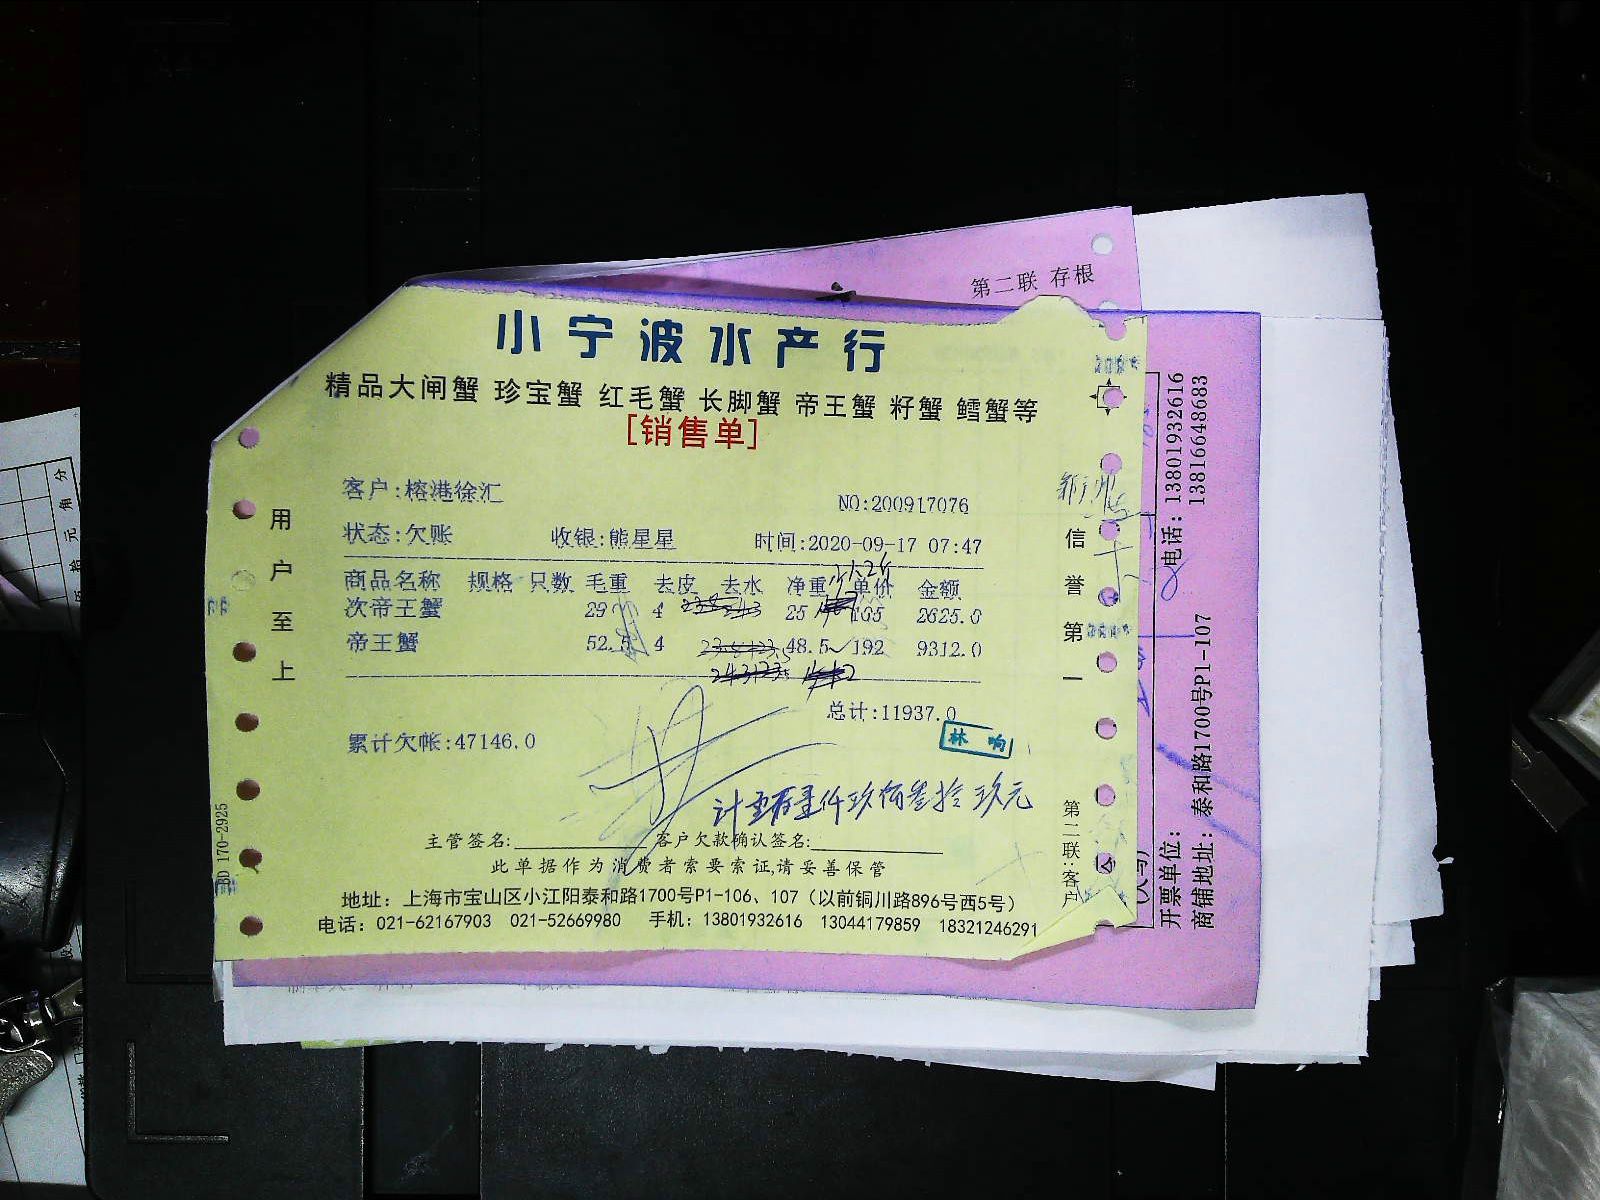 第二联 存根
小宁波水产行
精品大闸蟹 珍宝蟹 红毛蟹 长脚蟹 帝王蟹 籽蟹 鳕蟹等
[销售单]
客户:榕港徐汇
NO:200917076
状态:欠账 收银:熊星星 时间:2020-09-17 07:47
商品名称 规格 只数 毛重 去皮 去水 净重 单价 金额
次帝王蟹 29 4 25 105 2625.0
帝王蟹 52.5 4 48.5 192 9312.0
总计:11937.0
累计欠帐:47146.0
林 响
仟玖佰叁拾玖元
主管签名: 客户欠款确认签名:
此单据作为消费者索要索证,请妥善保管
地址：上海市宝山区小江阳泰和路1700号P1-106、107（以前铜川路896号西5号）
电话：021-62167903 021-52669980 手机：13801932616 13044179859 18321246291
用户至上
信誉第一
第二联:客户
BD 170-2925
电话：13801932616
13816648683
开票单位：
商铺地址：泰和路1700号P1-107
分
角
元